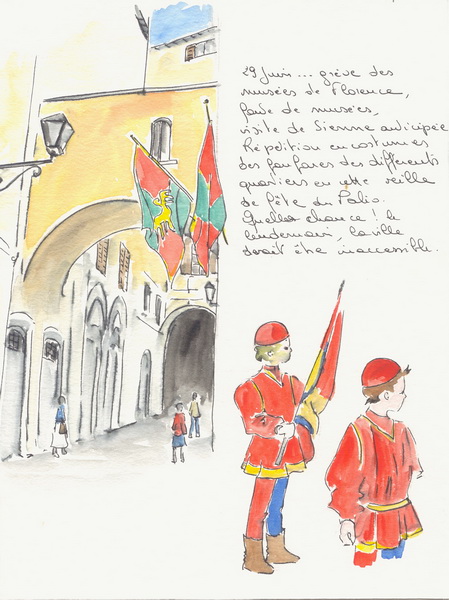 29 Juin ... grève des
musées de Florence,
faute de musées,
visite de Sienne anticipée
Répétition en costumes
des fanfares des différents
quartiers en cette veille
de fête du Palio.
Quelle chance ! le
lendemain la ville
serait être inaccessible.